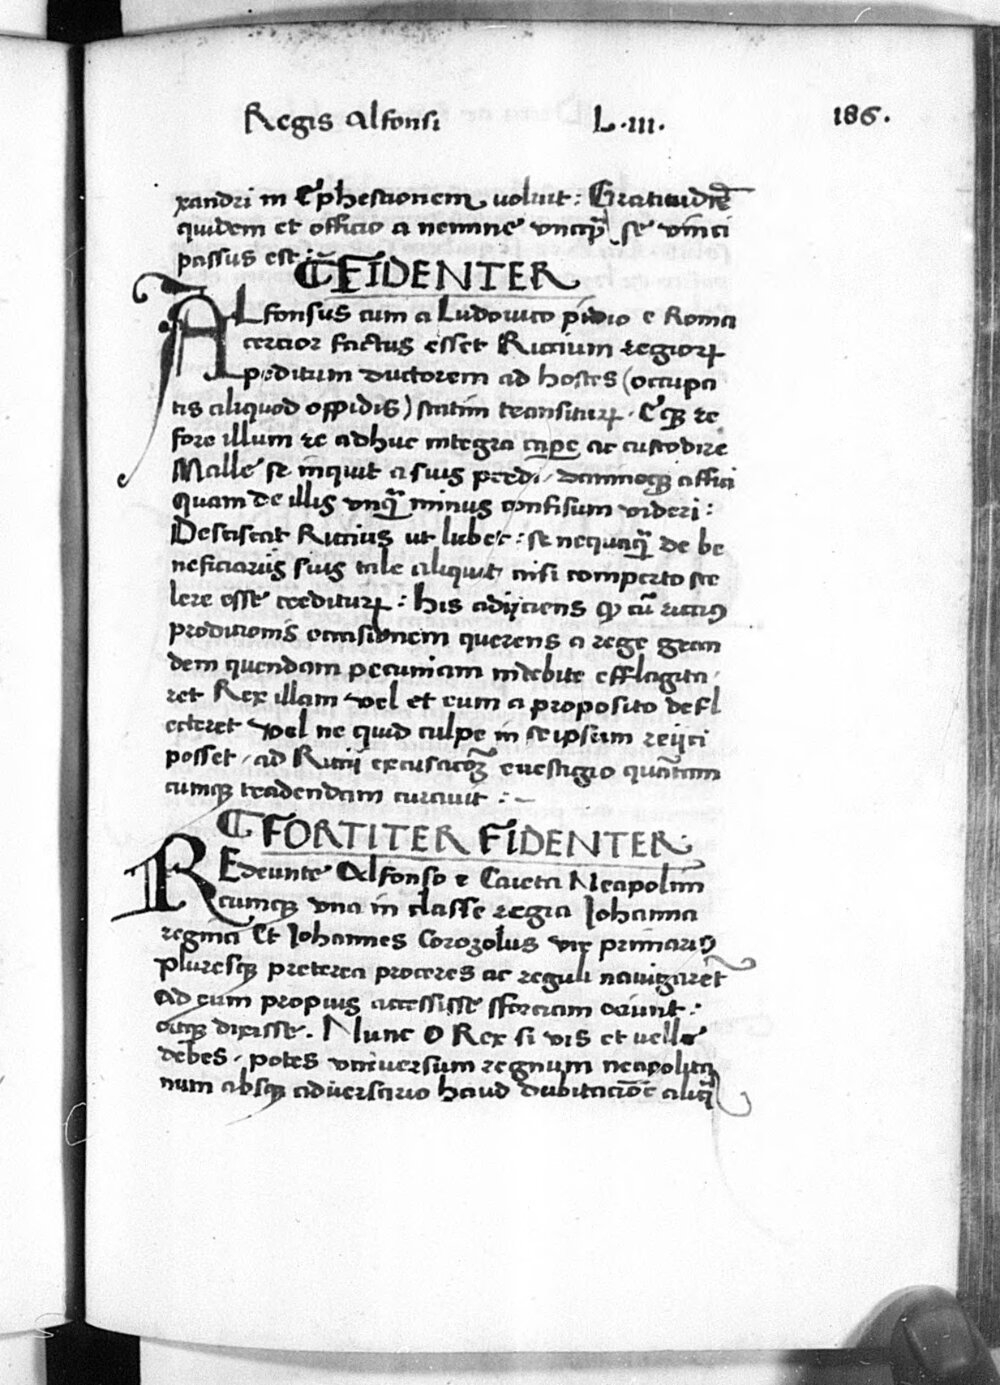 Regis Alfonsi L.III. 186.
xandri in Ephestionem voluit: Gratitudiē
quidem et officio a nemine vnqꝫ se vinci
passus est:~
¶ FIDENTER
ALfonsus cum a Ludovico pōdio e Roma
cercior factus esset Riccium regioꝝ
peditum ductorem ad hostes (occupa
tis aliquod oppidis) statim transituꝝ. Eqꝫ re
fore illum re adhuc integra capere ac custodire
Malle se inquit a suis predi, damnoqꝫ affici
quam de illis vnqꝫ minus confisum videri:
Desciscat Riccius ut lubet: se nequaqꝫ de be
neficiariis suis tale aliquit nisi comperto sce
lere esse credituꝝ: his adijciens qꝫ cū riccius
prodicionis occasionem querens a rege gran
dem quendam pecuniam indebite efflagita
ret Rex illam vel et eum a proposito defl
ecteret vel ne quid culpe in se ipsum reijci
posset, ad Riccij excusacōꝫ evestigio quātam
cumqꝫ tradendam curavit:~
¶ FORTITER FIDENTER
REdeunte Alfonso e Caieta Neapolim
cumqꝫ vna in classe regia Johanna
regina Et Johannes Corozolus vir primarius
pluresqꝫ preterea proceres ac reguli navigarēt
ad eum propius accessisse sforciam aiunt:
atqꝫ dixisse. Nunc O Rex si vis et velle
debes, potes vniversum regnum neapolita
num absqꝫ adversario haud dubitaciōe aliqꝫ